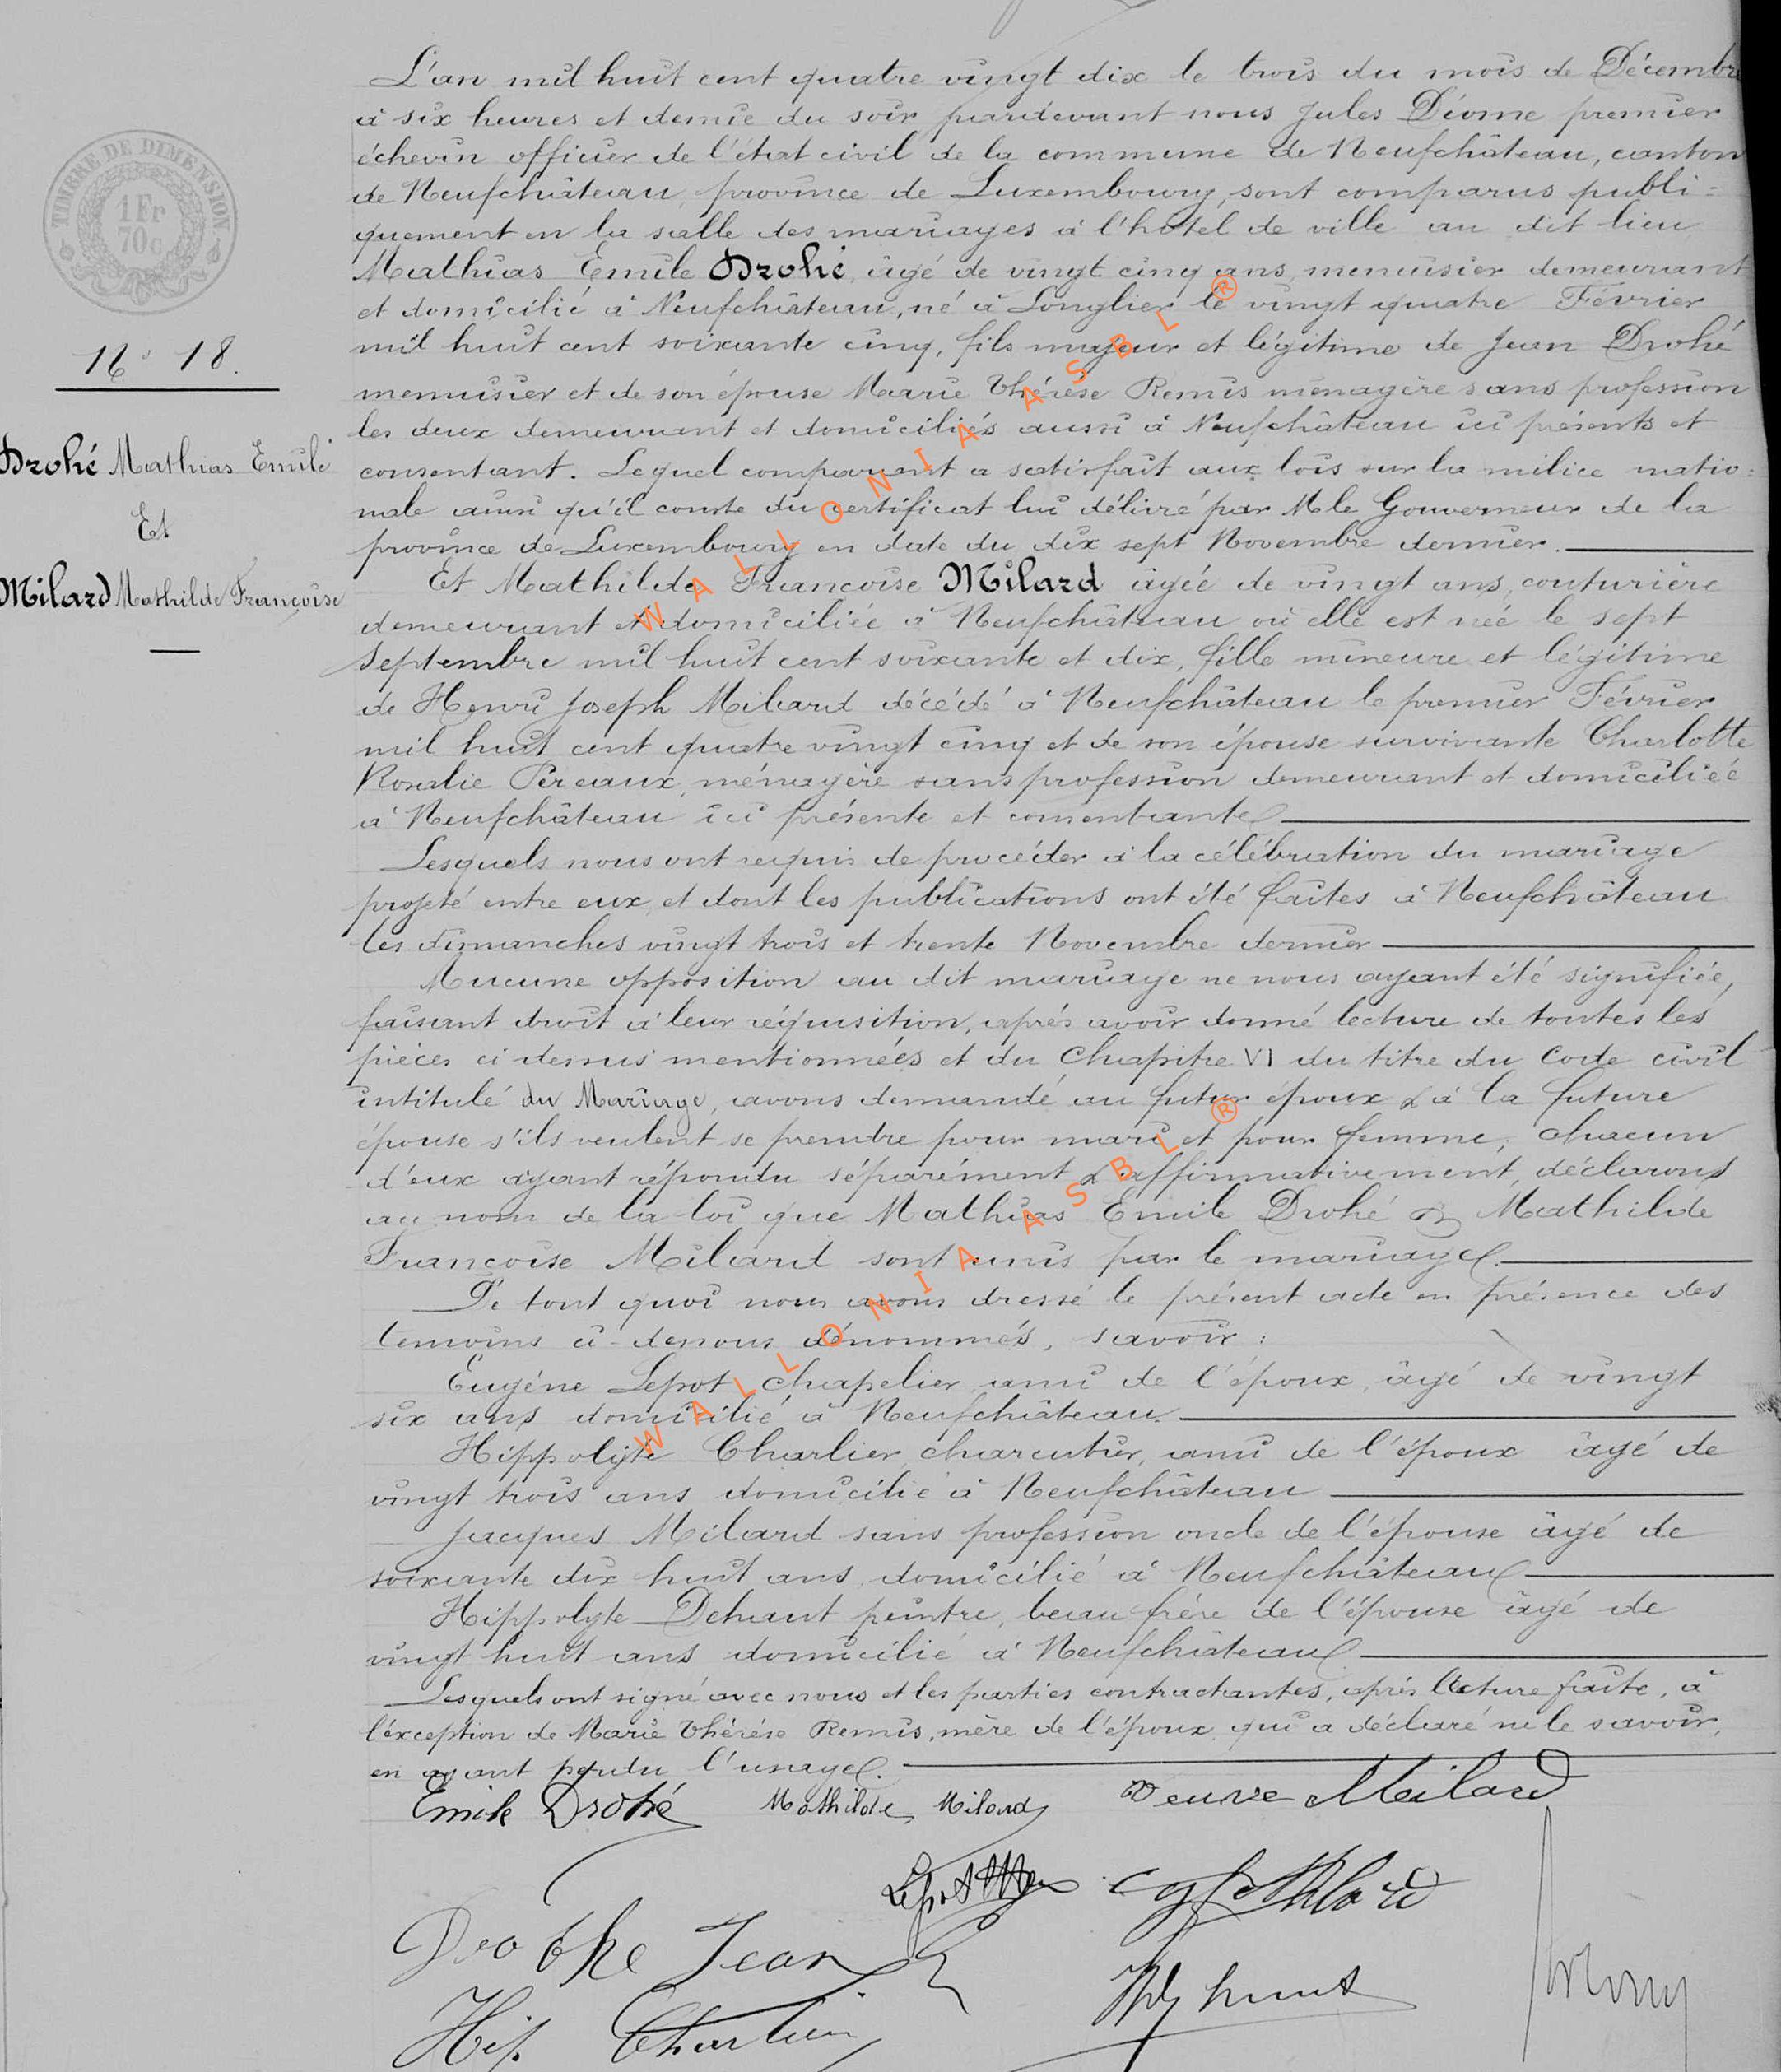 L'an mil huit cent quatre vingt dix le trois du mois de Décembre
à six heures et demie du soir pardevant nous Jules Déome premier
échevin officier de l'état civil de la commune de Neufchâteau, canton
de Neufchâteau, province de Luxembourg, sont comparus publi=
quement en la salle des mariages à l'hôtel de ville au dit lieu
Mathias Emile Drohé, âgé de vingt cinq ans, menuisier demeurant
et domicilié à Neufchâteau, né à Longlier le vingt quatre Février
mil huit cent soixante cinq, fils majeur et légitime de Jean Drohé
menuisier et de son épouse Marie Thérèse Remis ménagère sans profession
les deux demeurant et domiciliés aussi à Neufchâteau ici présents et
consentant. Lequel comparant a satisfait aux lois sur la milice natio=
nale ainsi qu'il conste du certificat lui délivré par M le Gouverneur de la
province de Luxembourg en date du dix sept Novembre dernier.
Et Mathilde Françoise Milard âgée de vingt ans, couturière
demeurant et domiciliée à Neufchâteau où elle est née le sept
Septembre mil huit cent soixante et dix, fille mineure et légitime
de Henri Joseph Milard décédé à Neufchâteau le premier Février
mil huit cent quatre vingt cinq et de son épouse survivante Charlotte
Rosalie Pereaux, ménagère sans profession demeurant et domiciliée
à Neufchâteau ici présente et consentante
Lesquels nous ont requis de procéder à la célébration du mariage
projeté entre eux, et dont les publications ont été faites à Neufchâteau
les dimanches vingt trois et trente Novembre dernier
Aucune opposition au dit mariage ne nous ayant été signifiée,
faisant droit à leur réquisition, après avoir donné lecture de toutes les
pièces ci dessus mentionnées et du Chapitre VI du titre du Code civil
intitulé du Mariage, avons demandé au futur époux & à la future
épouse s'ils veulent se prendre pour mari et pour femme; chacun
d'eux ayant répondu séparément & affirmativement, déclarons
au nom de la loi que Mathias Emile Drohé & Mathilde
Françoise Milard sont unis par le mariage.
De tout quoi nous avons dressé le présent acte en présence des
temoins ci-dessous dénommés, savoir:
Eugène Lepot, chapelier, ami de l'époux, âgé de vingt
six ans domicilié à Neufchâteau.
Hippolyte Charlier, charcutier, ami de l'époux âgé de
vingt trois ans domicilié à Neufchâteau
Jacques Milard sans profession oncle de l'épouse âgé de
soixante dix huit ans, domicilié à Neufchâteau
Hippolyte Dehaut peintre, beau frère de l'épouse âgé de
vingt huit ans domicilié à Neufchâteau
Lesquels ont signé avec nous et les parties contractantes, après lecture faite, à
l'éxception de Marie Thérèse Remis, mère de l'époux qui a déclaré ne le savoir,
en ayant perdu l'usage.
Emile Drohé Mathilde Milard veuve Milard
Drohe Jean
Hip. Charlier
TIMBRE DE DIMENSION
1 Fr
70c
N° 18.
Drohé Mathias Emile
Et
Milard Mathilde Françoise
WALLONIA ASBL ®
WALLONIA ASBL ®